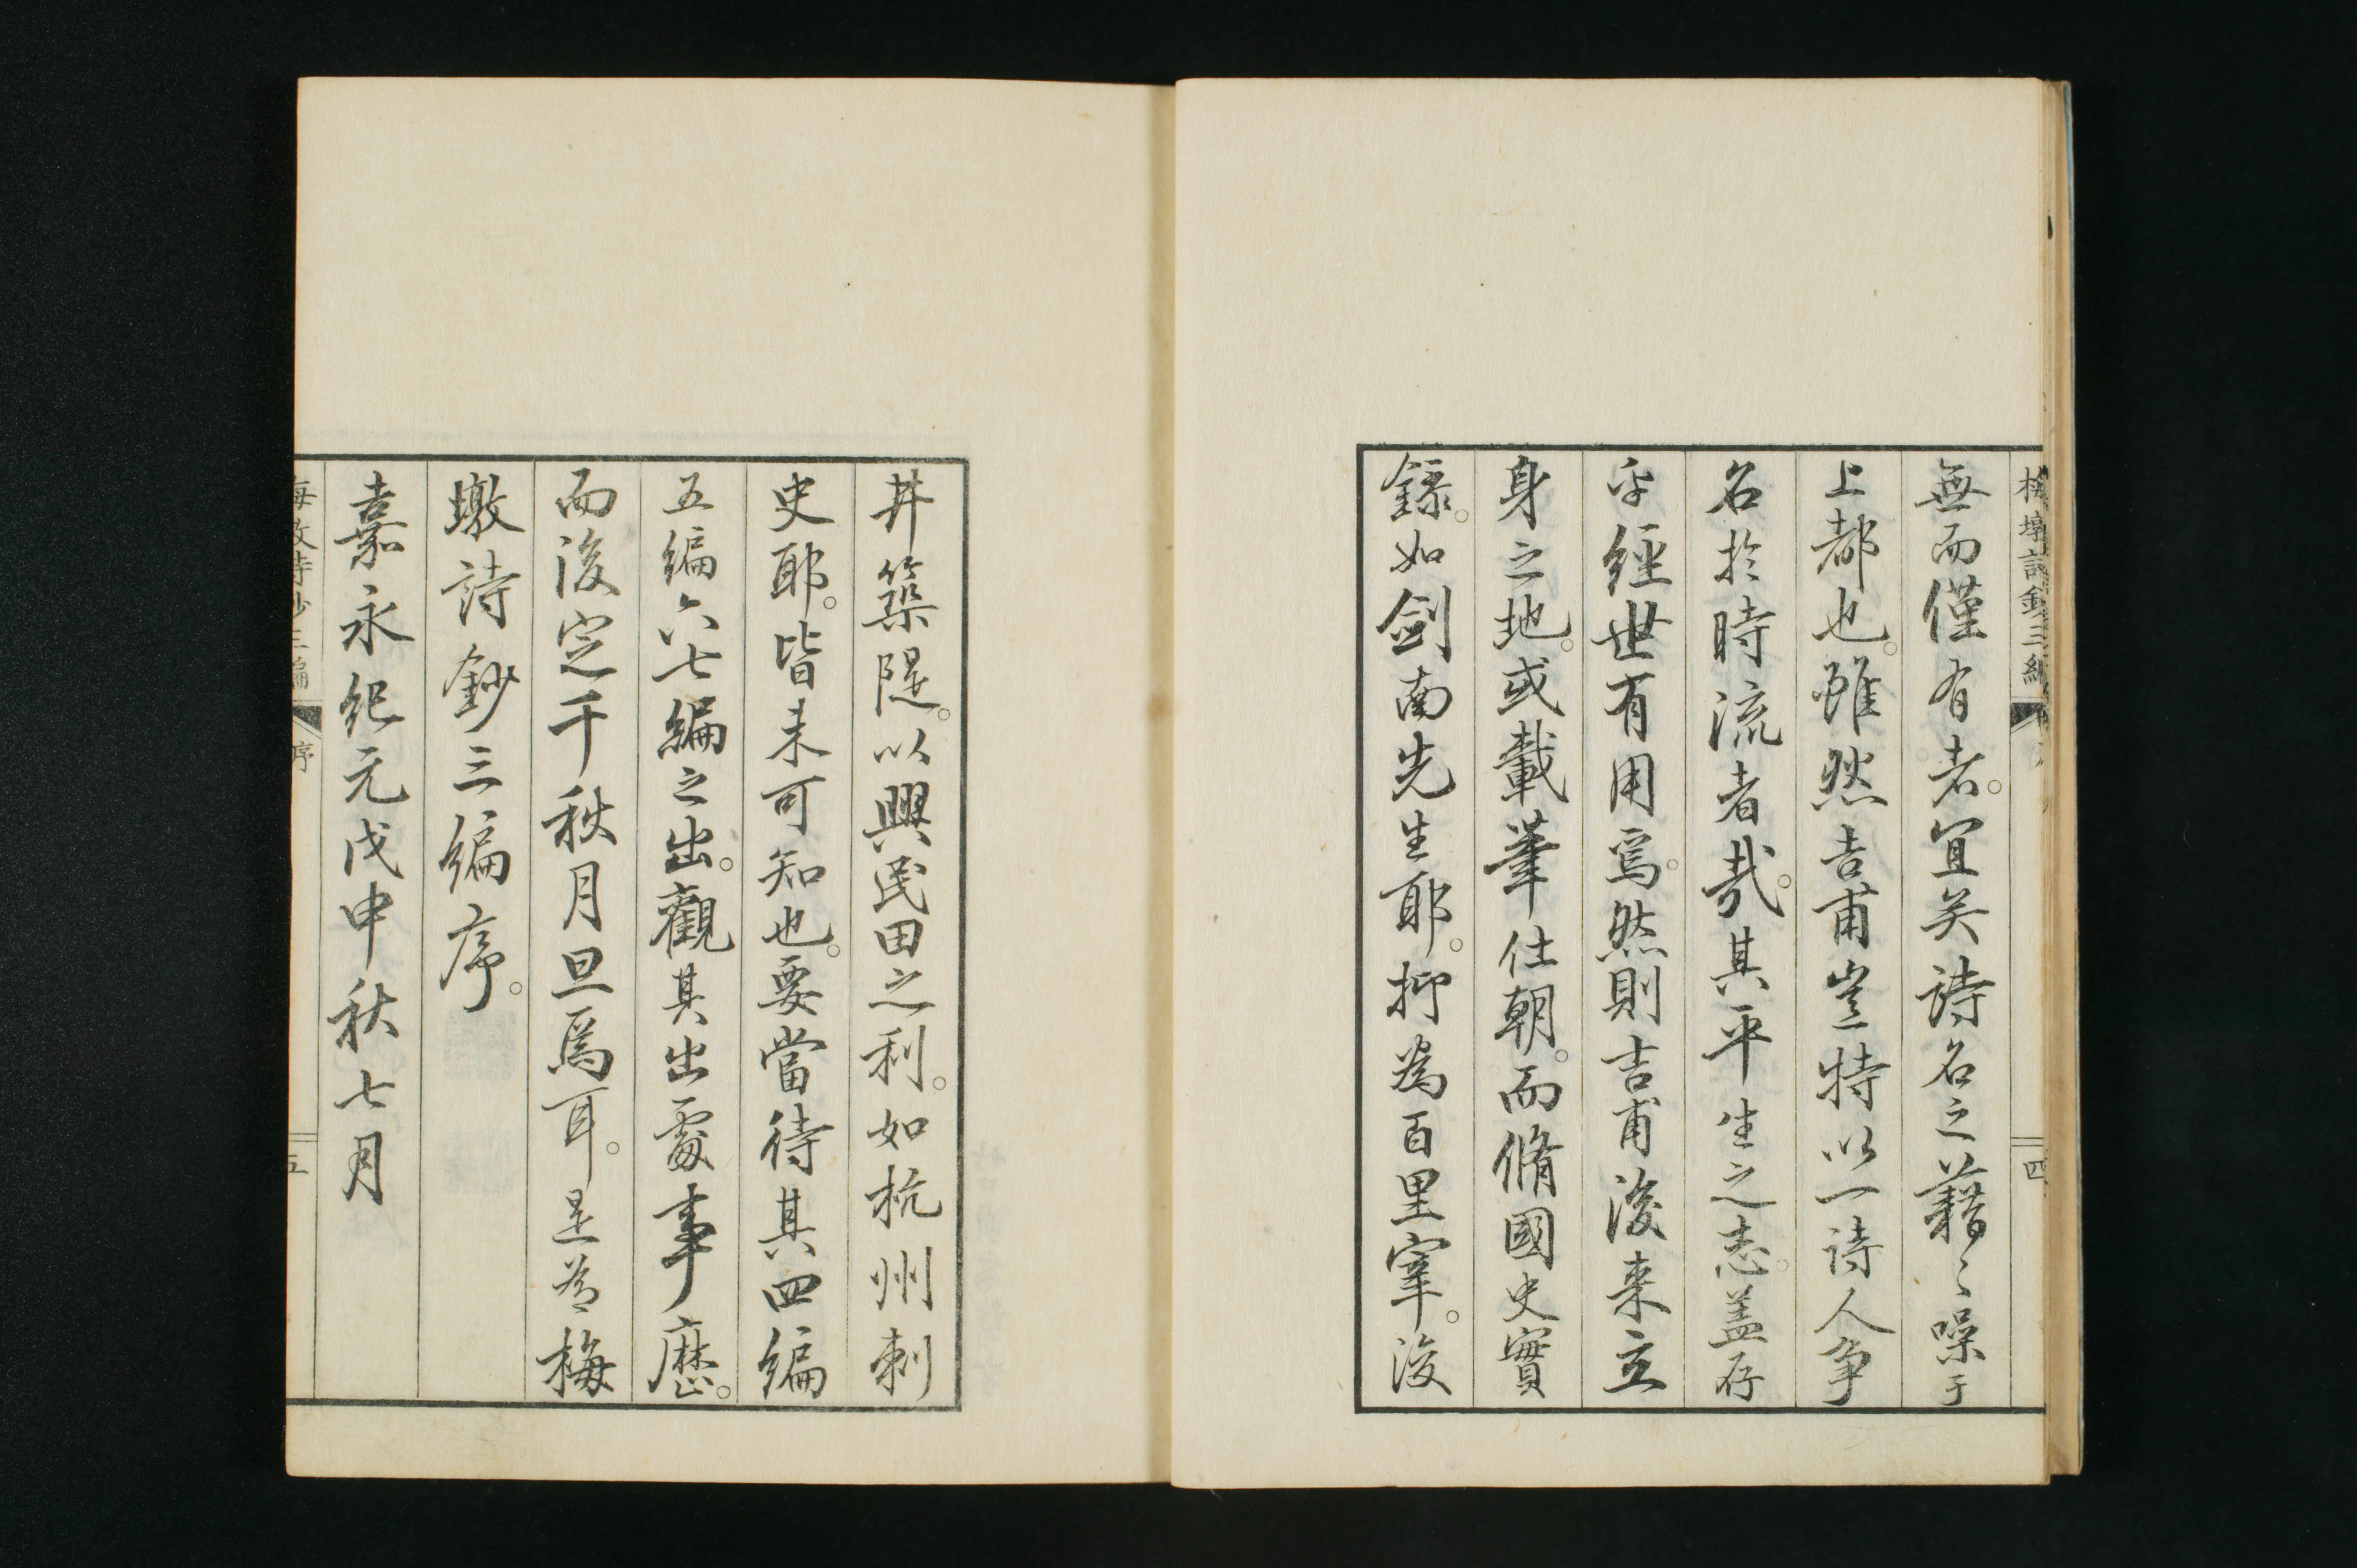 無而僅有者。宜矣詩名之藉〻噪于
上都也。雖然吉甫豈特以一詩人爭
名於時流者哉。其平生之志。蓋存
乎經世有用焉。然則吉甫後来立
身之地。或載筆仕朝。而脩國史實
錄。如劍南先生耶。抑為百里宰。後
井築隄。以興民田之利。如杭州刺
史耶。皆未可知也。要當待其四編
五編六七編之出。觀其出處事歷。
而後定千秋月旦焉耳。是為梅
墩詩鈔三編序。
嘉永紀元戊申秋七月
梅墩詩鈔三編
四
序
五